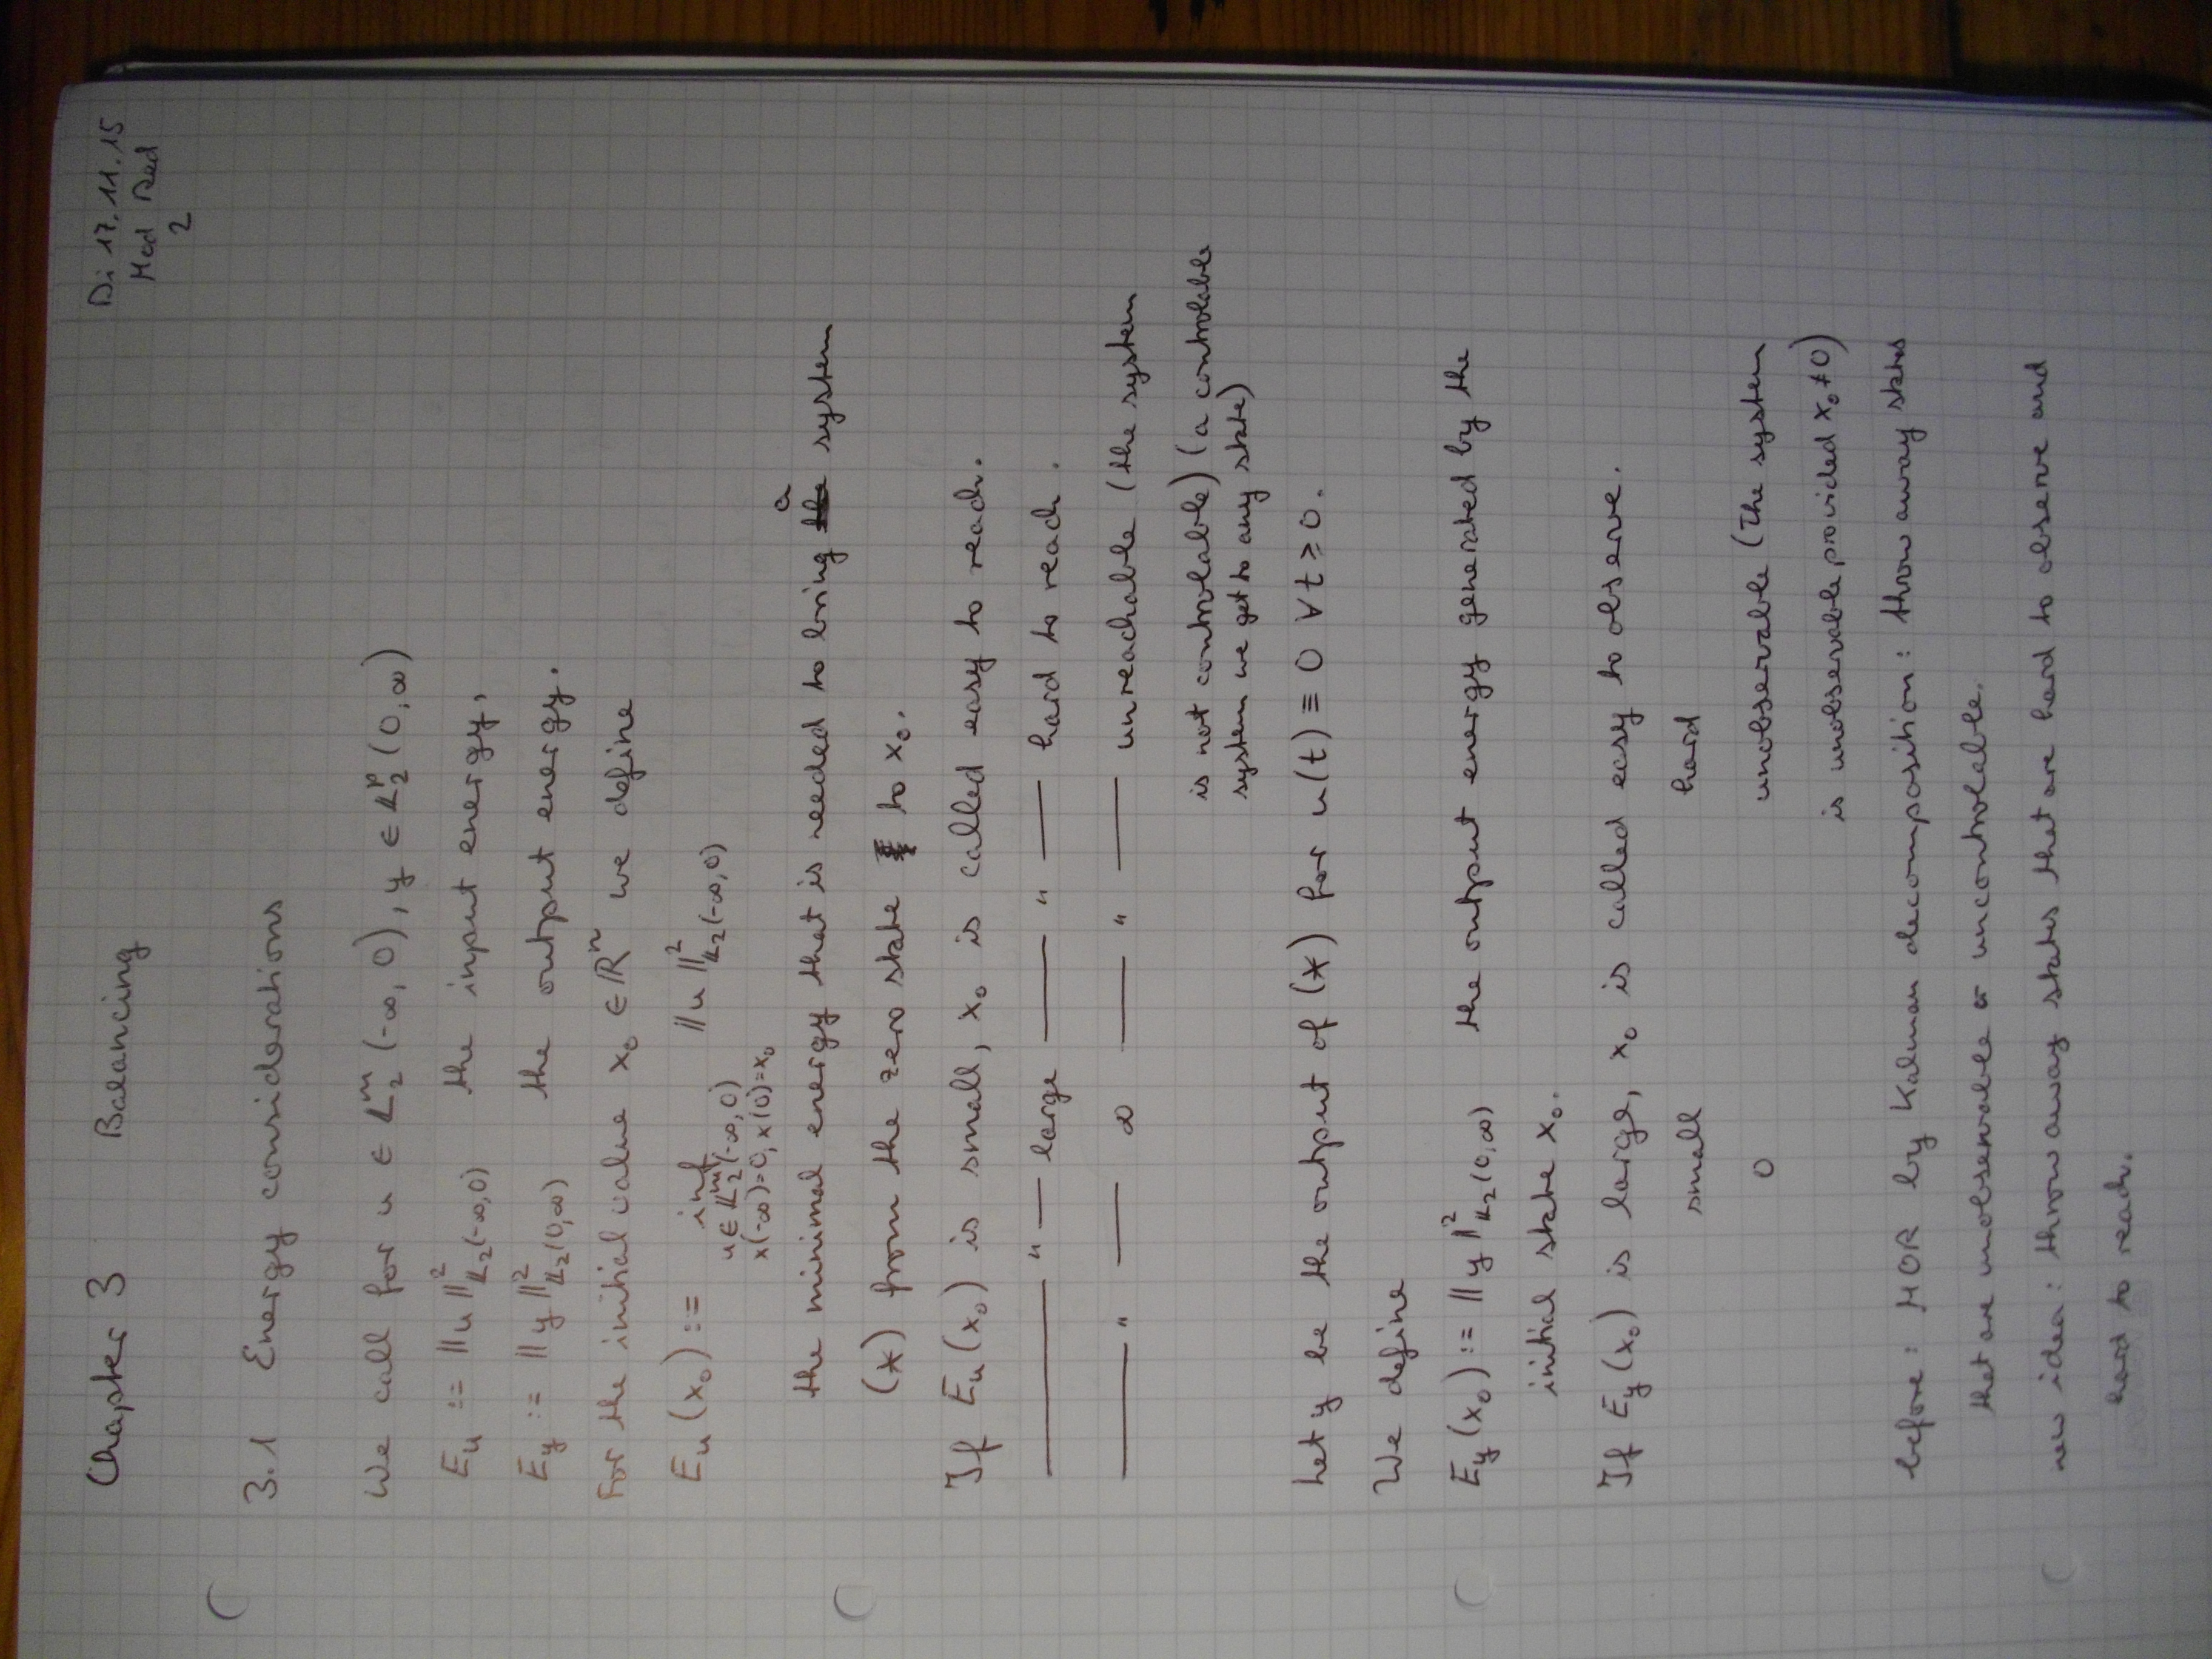 Di 17.11.15
Mod Red
2
Chapter 3 Balancing
3.1 Energy considerations
We call for u ∈ L₂ᵐ(-∞, 0), y ∈ L₂ᵖ(0, ∞)
E_u := ‖u‖²_{L₂(-∞,0)} the input energy,
E_y := ‖y‖²_{L₂(0,∞)} the output energy.
For the initial value x₀ ∈ ℝⁿ we define
E_u(x₀) := inf ‖u‖²_{L₂(-∞,0)}
u ∈ L₂ᵐ(-∞,0)
x(-∞)=0, x(0)=x₀
a
the minimal energy that is needed to bring the system
(*) from the zero state to x₀.
If E_u(x₀) is small, x₀ is called easy to reach.
—— " — large —— " —— hard to reach.
—— " —— ∞ —— " —— unreachable (the system
is not controlable) (a controlable
system we get to any state)
Let y be the output of (*) for u(t) ≡ 0 ∀ t ≥ 0.
We define
E_y(x₀) := ‖y‖²_{L₂(0,∞)} the output energy generated by the
initial state x₀.
If E_y(x₀) is large, x₀ is called easy to observe.
small hard
0 unobservable (The system
is unobservable provided x₀ ≠ 0)
before: MOR by Kalman decomposition: throw away states
that are unobservable or uncontrolable.
new idea: throw away states that are hard to observe and
hard to reach.